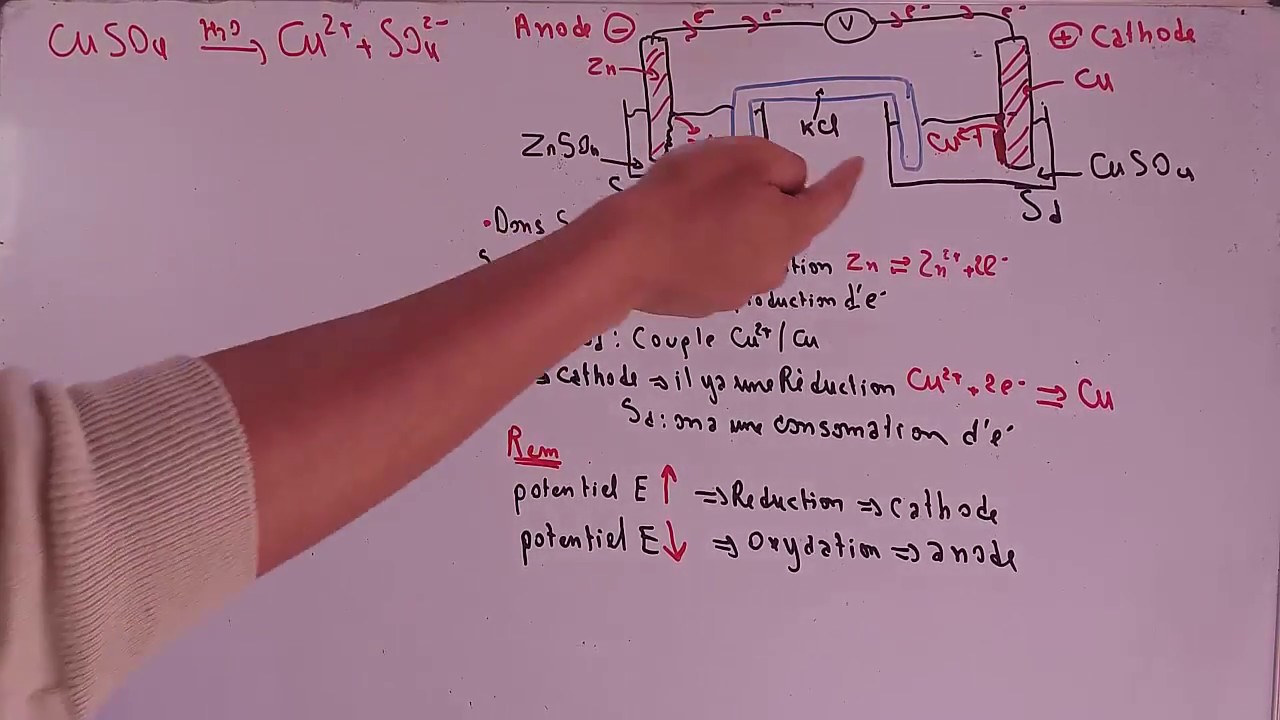 CuSO₄ —H₂O→ Cu²⁺ + SO₄²⁻
Anode ⊖ e⁻ e⁻ V e⁻ e⁻ ⊕ Cathode
Zn
Cu
KCl
Cu²⁺
ZnSO₄
CuSO₄
S
Sd
• Dans S
Zn ⇌ Zn²⁺ + 2e⁻
d'e⁻
: Couple Cu²⁺/Cu
⇒ Cathode ⇒ il ya une Réduction Cu²⁺ + 2e⁻ ⇌ Cu
Sd : on a une consomation d'e⁻
Rem
potentiel E ↑ ⇒ Reduction ⇒ Cathode
potentiel E ↓ ⇒ Oxydation ⇒ anode